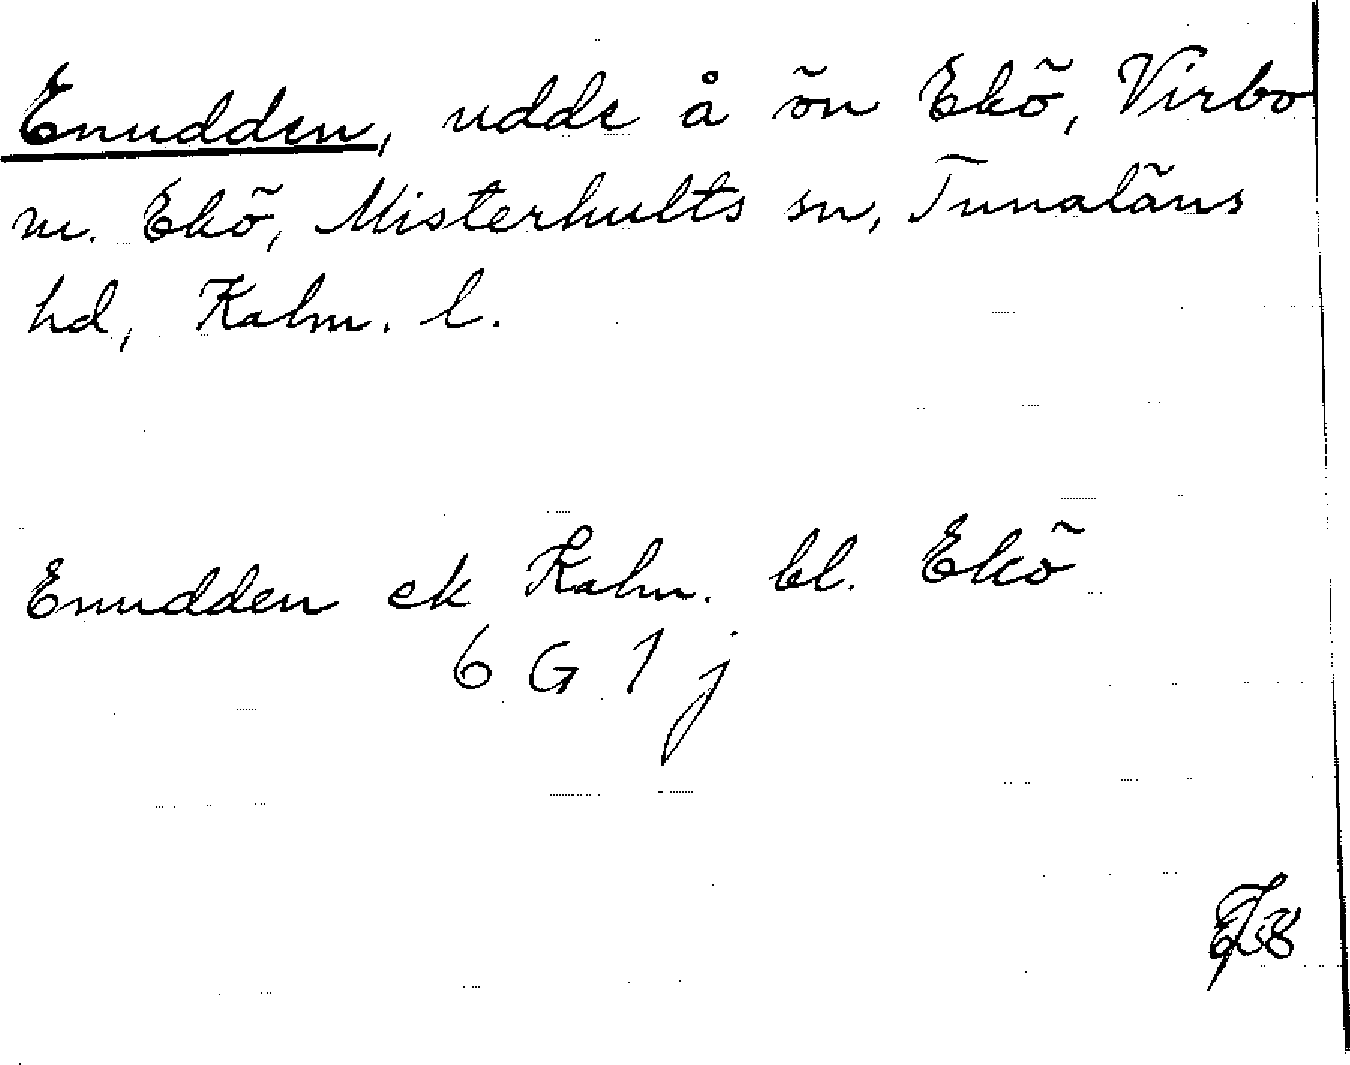 Enudden, udde å ön Ekö, Virbo
m. Ekö, Misterhults sn, Tunaläns
hd, Kalm. l.
Enudden ek Kalm. bl. Ekö
6 G 1 j